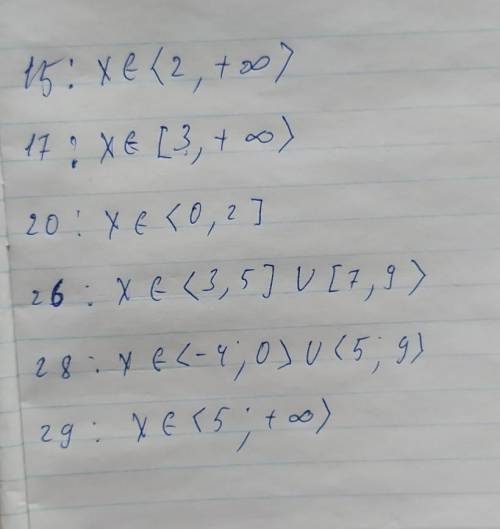 15: x ∈ ⟨2, +∞⟩
17: x ∈ [3, +∞⟩
20: x ∈ ⟨0, 2]
26: x ∈ ⟨3, 5] ∪ [7, 9⟩
28: x ∈ ⟨-4; 0⟩ ∪ ⟨5; 9⟩
29: x ∈ ⟨5; +∞⟩